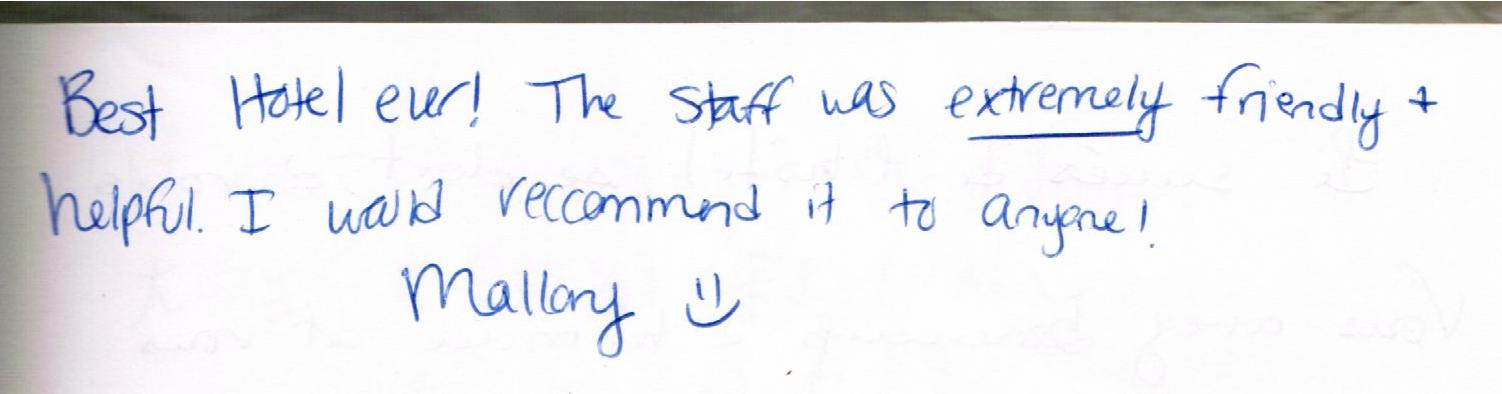 Best Hotel ever! The staff was extremely friendly +
helpful. I would reccommend it to anyone!
Mallory :)